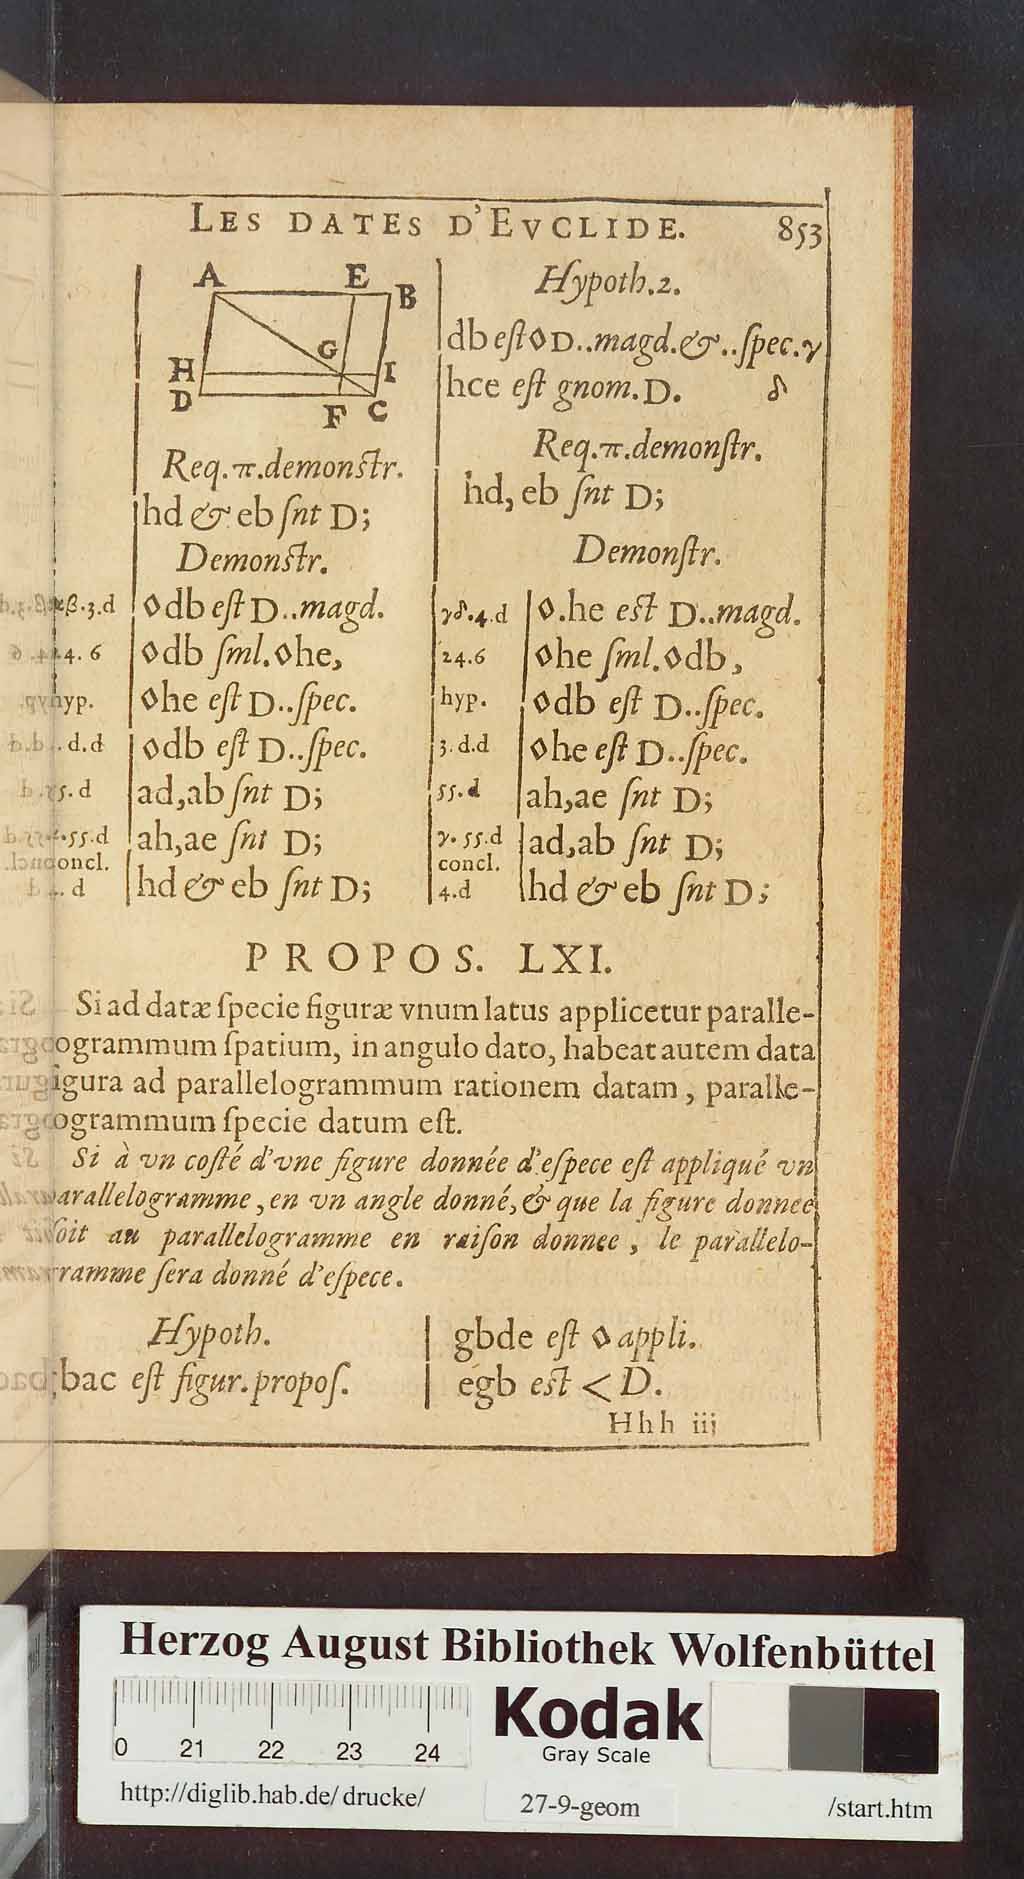 LES DATES D'EVCLIDE. 853
A E B
G
H I
D F C
Req.π.demonſtr.
hd & eb ſnt D;
Demonſtr.
β.3.d ◊db eſt D..magd.
4. 6 ◊db ſml.◊he,
hyp. ◊he eſt D..ſpec.
d.d ◊db eſt D..ſpec.
5. d ad,ab ſnt D;
.55.d ah,ae ſnt D;
oncl.
. d hd & eb ſnt D;
Hypoth.2.
db eſt ◊ D..magd.&..ſpec.γ
hce eſt gnom.D. δ
Req.π.demonſtr.
hd, eb ſnt D;
Demonſtr.
γδ.4.d ◊.he eſt D..magd.
24.6 ◊he ſml.◊db,
hyp. ◊db eſt D..ſpec.
3.d.d ◊he eſt D..ſpec.
55.d ah,ae ſnt D;
γ.55.d ad,ab ſnt D;
concl.
4.d hd & eb ſnt D;
PROPOS. LXI.
Si ad datæ ſpecie figuræ vnum latus applicetur paralle-
ogrammum ſpatium, in angulo dato, habeat autem data
igura ad parallelogrammum rationem datam, paralle-
ogrammum ſpecie datum eſt.
Si à vn coſté d'vne figure donnée d'eſpece eſt appliqué vn
arallelogramme, en vn angle donné, & que la figure donnee
ſoit au parallelogramme en raiſon donnee, le parallelo-
ramme ſera donné d'eſpece.
Hypoth.
bac eſt figur.propoſ.
gbde eſt ◊ appli.
egb eſt < D.
Hhh iij
Herzog August Bibliothek Wolfenbüttel
0 21 22 23 24
Kodak
Gray Scale
http://diglib.hab.de/drucke/ 27-9-geom /start.htm